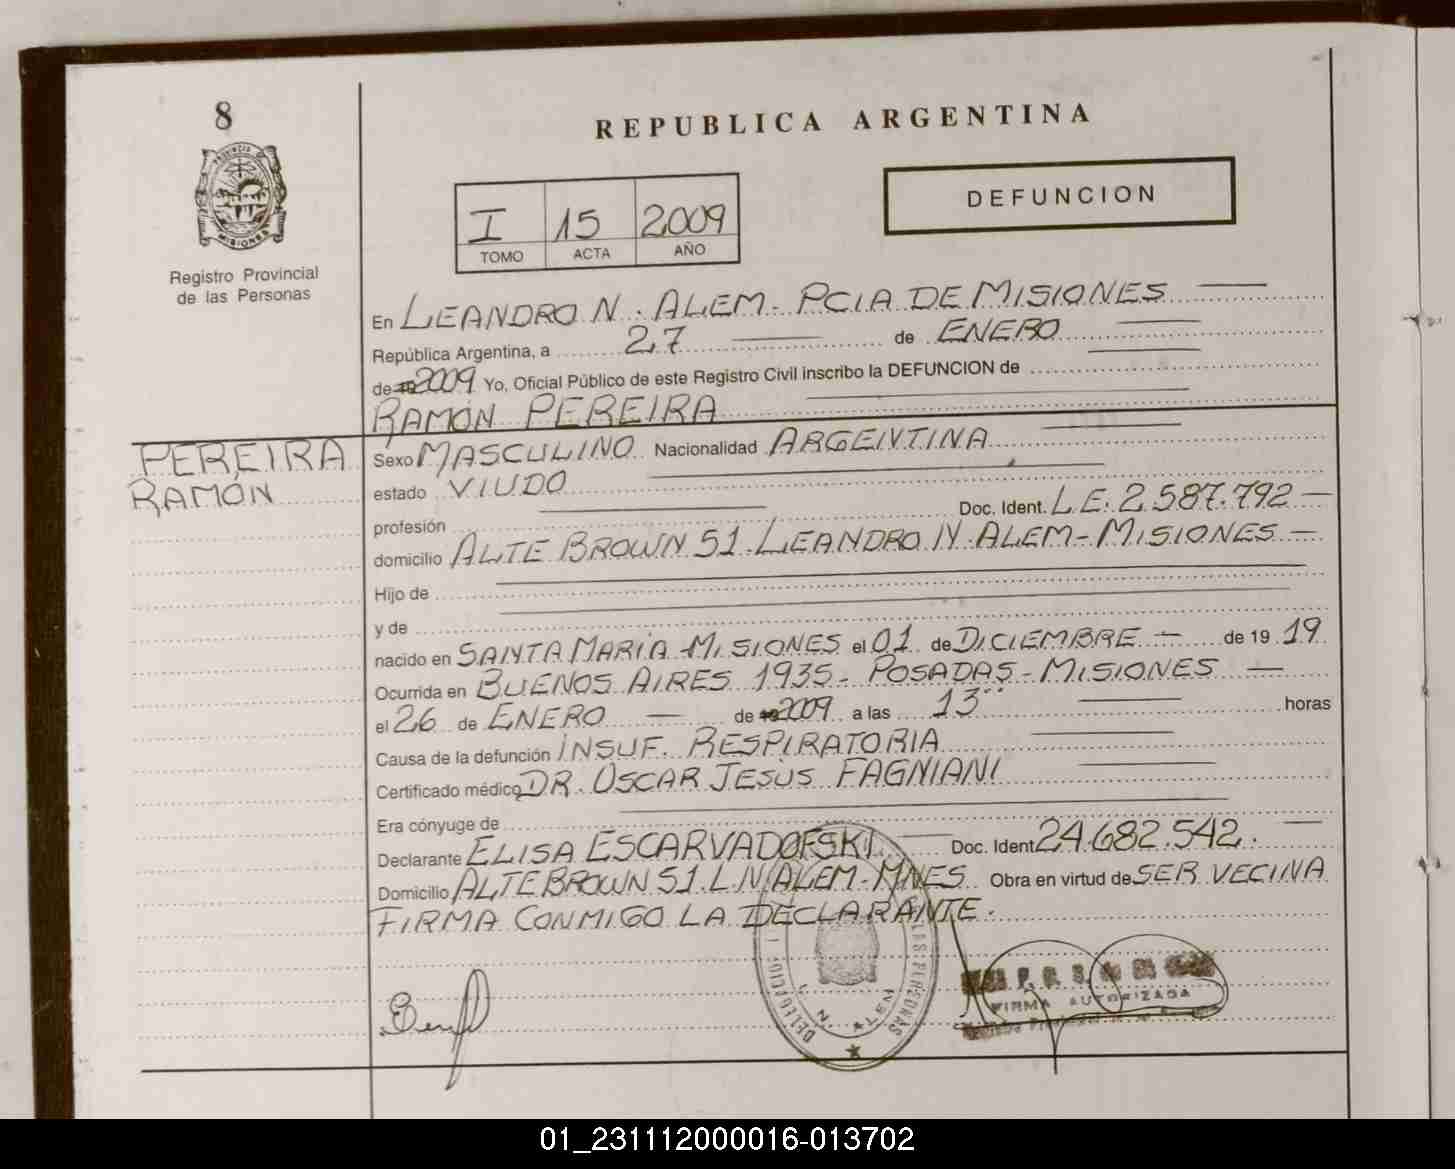 8
REPUBLICA ARGENTINA
PROVINCIA DE
MISIONES
Registro Provincial
de las Personas
I 15 2009
TOMO ACTA AÑO
DEFUNCION
En LEANDRO N. ALEM - PCIA DE MISIONES
República Argentina, a 27 de ENERO
de 2009 Yo, Oficial Público de este Registro Civil inscribo la DEFUNCION de
RAMÓN PEREIRA
PEREIRA
RAMÓN
Sexo MASCULINO Nacionalidad ARGENTINA
estado VIUDO
profesión Doc. Ident. L.E. 2.587.792 -
domicilio ALTE BROWN 51. LEANDRO N. ALEM - MISIONES -
Hijo de
y de
nacido en SANTA MARÍA - MISIONES el 01 de DICIEMBRE - de 19 19
Ocurrida en BUENOS AIRES 1935 - POSADAS - MISIONES -
el 26 de ENERO - de 2009 a las 13 horas
Causa de la defunción INSUF. RESPIRATORIA
Certificado médico DR. OSCAR JESÚS FAGNIANI
Era cónyuge de
Declarante ELISA ESCARVADOFSKI Doc. Ident 24.682.542. -
Domicilio ALTE BROWN 51. L.N. ALEM - MNES Obra en virtud de SER VECINA
FIRMA CONMIGO LA DECLARANTE.
LAS PERSONAS
N. ALEM
FIRMA AUTORIZADA
01_231112000016-013702